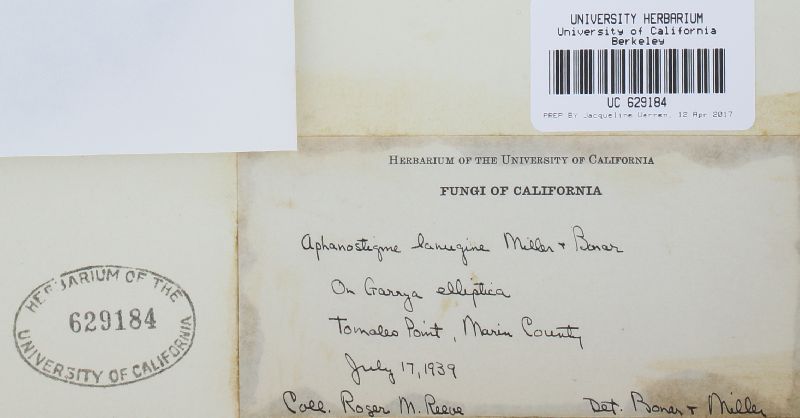 UNIVERSITY HERBARIUM
University of California
Berkeley
UC 629184
PREP BY Jacqueline Werren, 12 Apr 2017
HERBARIUM OF THE UNIVERSITY OF CALIFORNIA
FUNGI OF CALIFORNIA
Aphanostigme lanugine Miller + Bonar
On Garrya elliptica
Tomales Point, Marin County
July 17, 1939
Coll. Roger M. Reeve
Det. Bonar + Miller
HERBARIUM OF THE
629184
UNIVERSITY OF CALIFORNIA